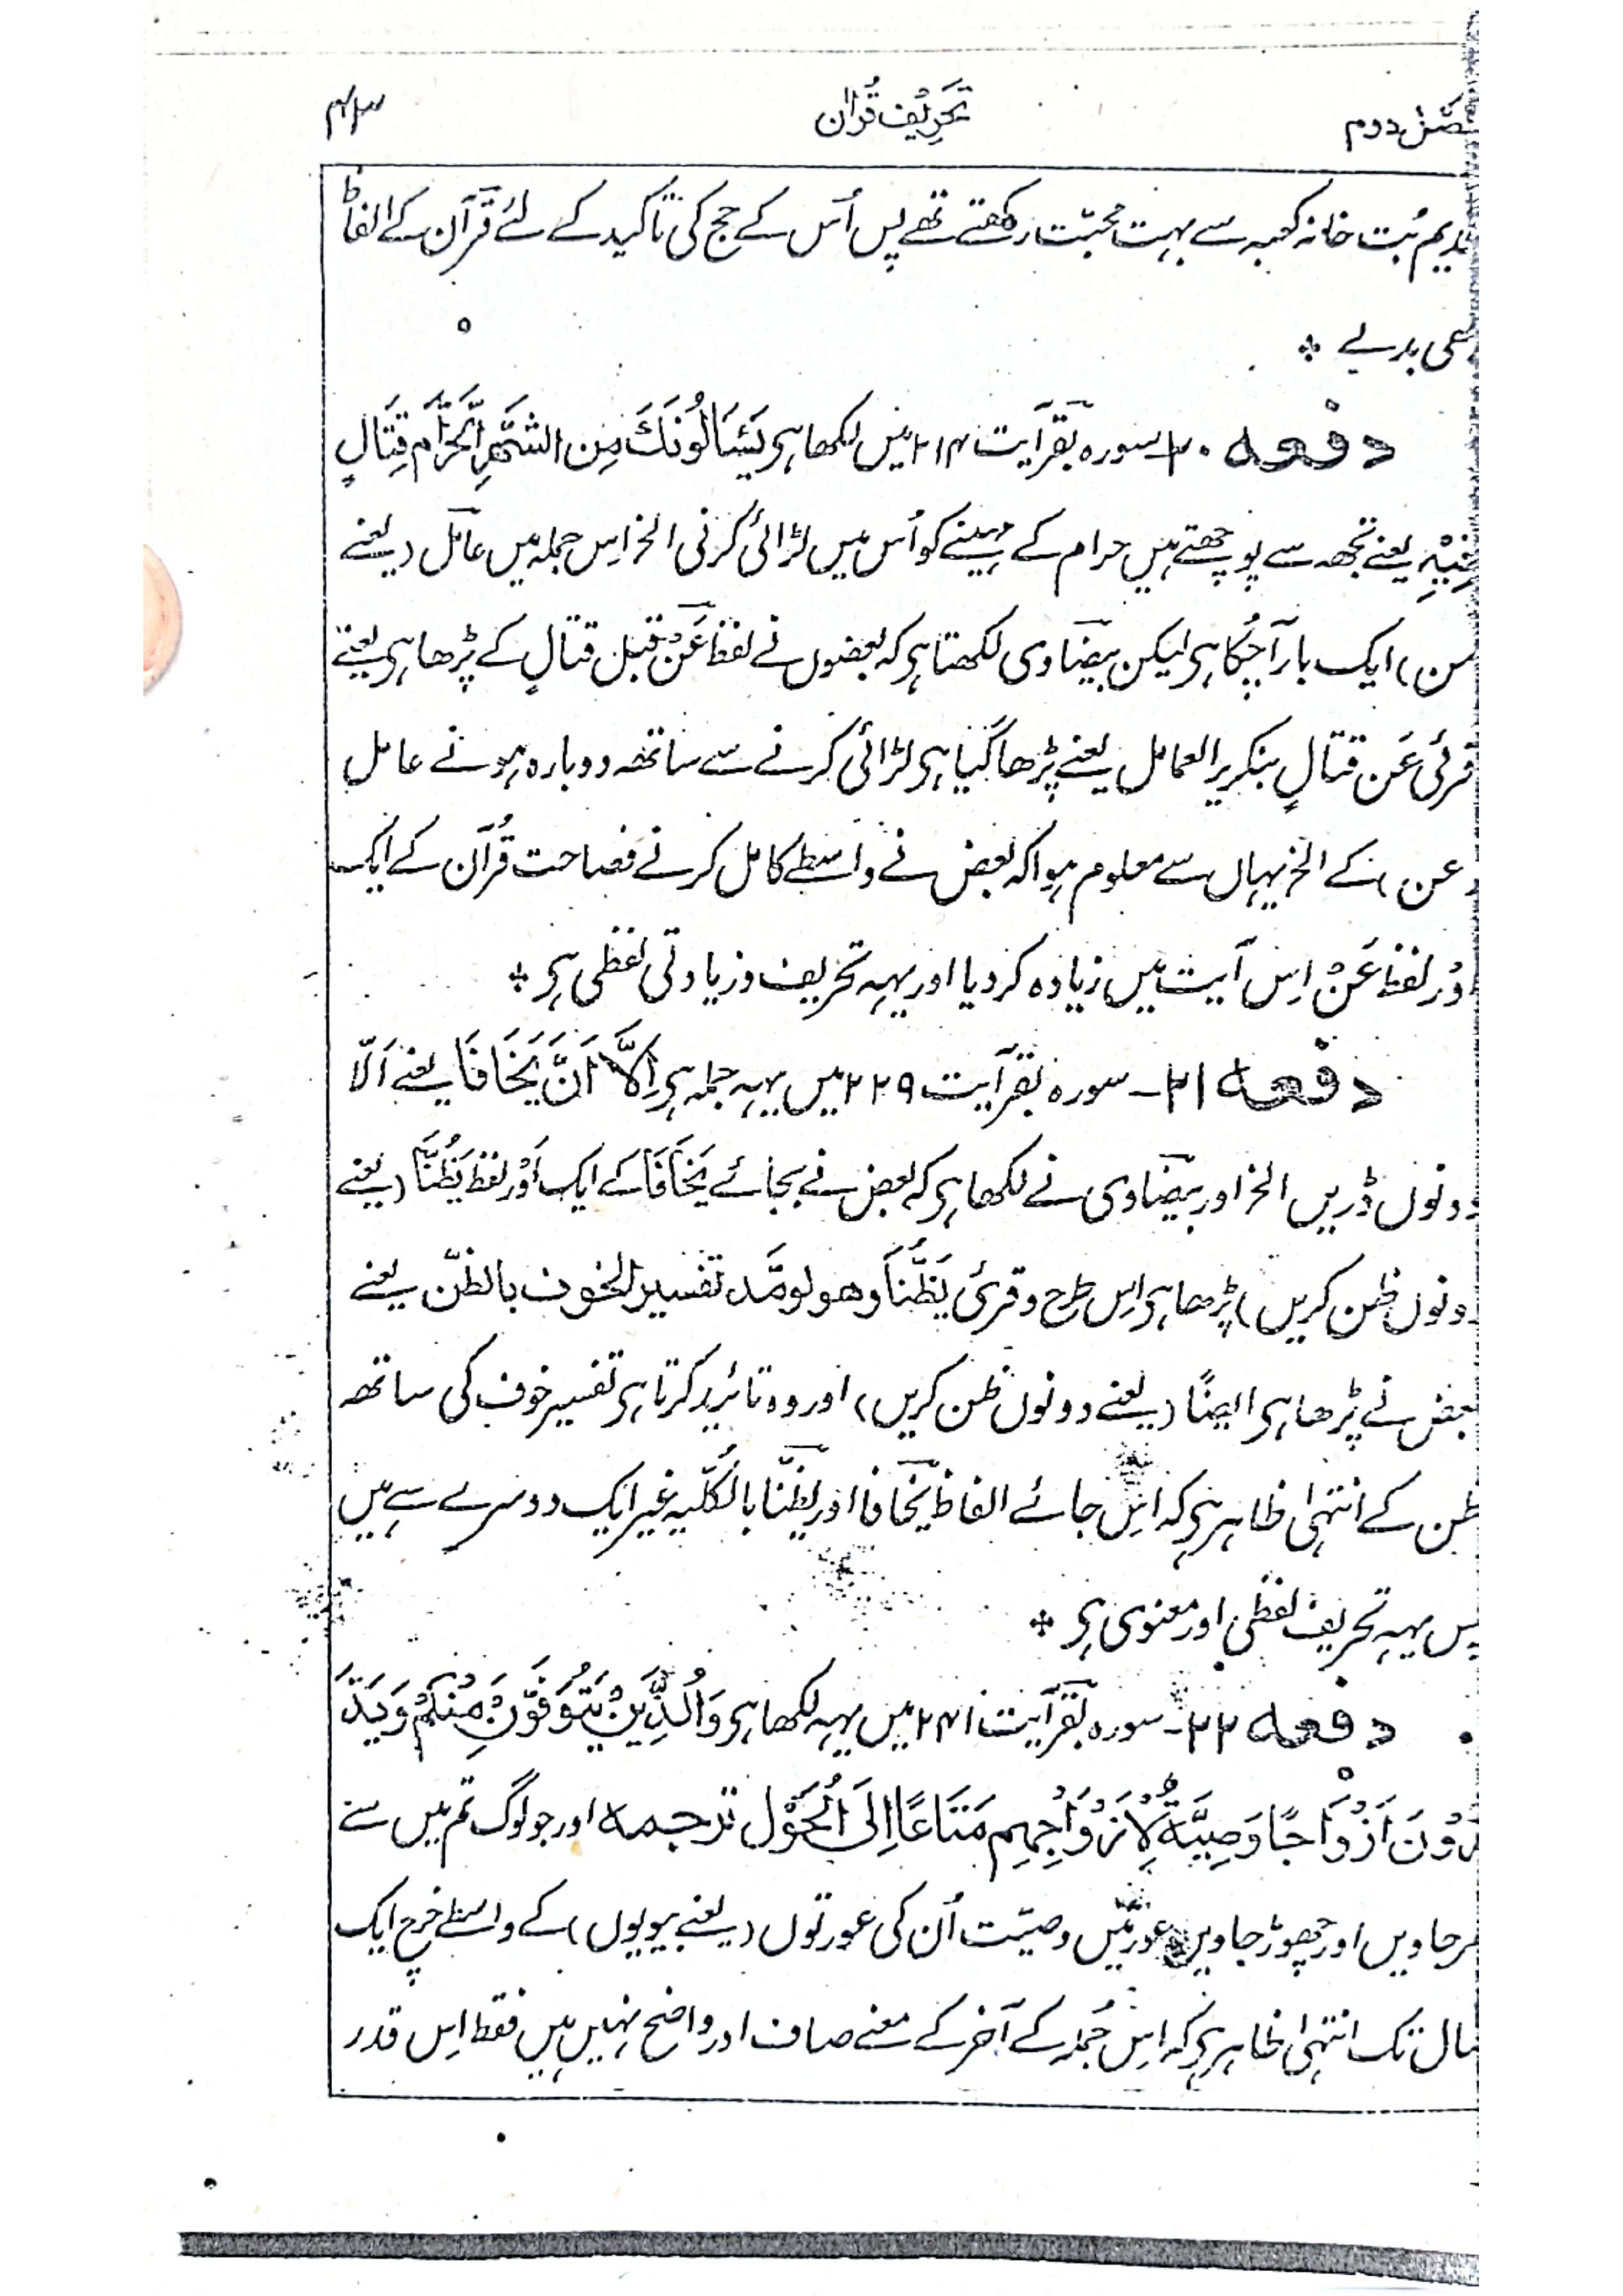 دوم تحریف قرآن ۴۳
قدیم بُت خانہ کعبہ سے بہت محبّت رکھتے تھے پس اُس کے حج کی تاکید کے لئے قرآن کے الفاظ
بھی بدلے *
دفعہ ۲۰۔ سورہ بقر آیت ۲۱۴ میں لکھا ہی یَسَٔالُونَکَ مِن الشَّھْرِ الْحَرَّام قِتَالٍ
فِیْہِ یعنے تجھ سے پوچھتے ہیں حرام کے مہینے کو اُس میں لڑائی کرنی الخ اِس جملہ میں عامل (یعنے
من) ایک بار آ چُکا ہی لیکن بیضاوی لکھتا ہی کہ بعضوں نے لفظ عَنْ قبل قتالٍ کے پڑھا ہی یعنے
قرئی عَن قتالٍ بتکریر العامل یعنے پڑھا گیا ہی لڑائی کرنے سے ساتھ دوبارہ ہونے عامل
(عن) کے الخ یہاں سے معلوم ہوا کہ بعض نے واسطے کامل کرنے فصاحت قُرآن کے ایک
اَوْر لفظ عَنْ اِس آیت میں زیادہ کر دیا اور یہہ تحریف و زیادتی لفظی ہی *
دفعہ ۲۱۔ سورہ بقر آیت ۲۲۹ میں یہہ جملہ ہی اِلَّا اَنَّ یَخَافَا یعنے اَلّا
دونوں ڈریں الخ اور بیضاوی نے لکھا ہی کہ بعض نے بجائے یَخَافَا کے ایک اَوْر لفظ یَظُنَّا (یعنے
دونوں ظن کریں) پڑھا ہی اِس طرح وقرئ یَظُنَّا وھو لومَّد تفسیر الخوف بالظنّ یعنے
بعض نے پڑھا ہی ایضًا (یعنے دونوں ظن کریں) اور وہ تائید کرتا ہی تفسیر خوف کی ساتھ
ظن کے انتہیٰ ظاہر ہی کہ اِس جائے الفاظ یخافا اور یظنّا بالکُلّیہ غیر ایک دوسرے سے ہیں
پس یہہ تحریف لفظی اور معنوی ہی *
دفعہ ۲۲۔ سورہ بقر آیت ۲۴۱ میں یہہ لکھا ہی وَالُذِّیَنْ یَتُوَفَّوَّنَ مِنْکُمْ وَیَذَ
رُوْنَ اَزْوَاجًا وَصِیَّۃُ لِاَزْوَاْجِھِم مَتَاعًا اِلَی الْحَوْل ترجمہ اور جو لوگ تم میں سے
مر جاویں اور چھوڑ جاویں عورتیں وصیّت اُن کی عورتوں (یعنے بیویوں) کے واسطے خرچ ایک
سال تک انتہیٰ ظاہر ہی کہ اِس جُملہ کے آخر کے معنے صاف اور واضح نہیں ہیں فقط اِس قدر